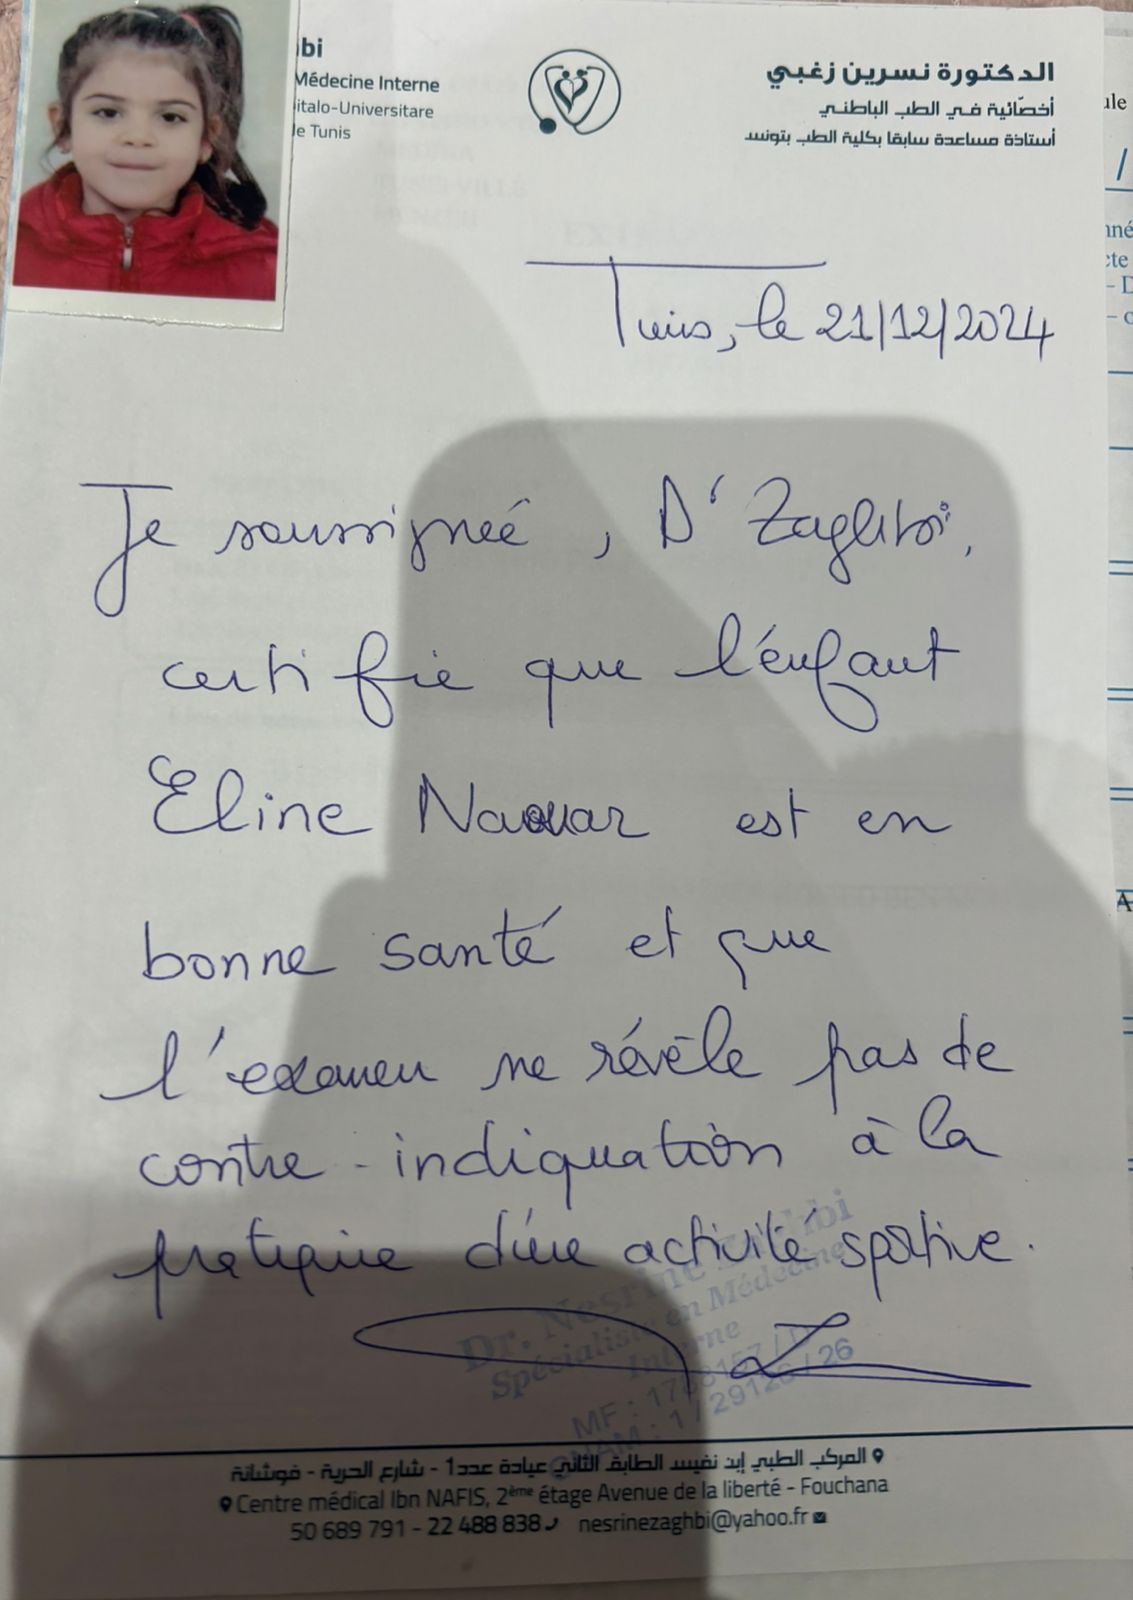 bi
Médecine Interne
italo-Universitare
de Tunis
الدكتورة نسرين زغبي
أخصّائية في الطب الباطني
أستاذة مساعدة سابقا بكلية الطب بتونس
Tunis, le 21/12/2024
Je soussignée, Dr Zaghbi,
certifie que l'enfant
Eline Naouar est en
bonne santé et que
l'examen ne révèle pas de
contre-indiquation à la
pratique d'une activité sportive.
Dr. Nesrine Zaghbi
Spécialiste en Médecine
Interne
MF : 17
CNAM : 1 / 29126 / 26
المركب الطبي إبن نفيس الطابق الثاني عيادة عدد1 - شارع الحرية - فوشانة
Centre médical Ibn NAFIS, 2ème étage Avenue de la liberté - Fouchana
50 689 791 - 22 488 838 nesrinezaghbi@yahoo.fr